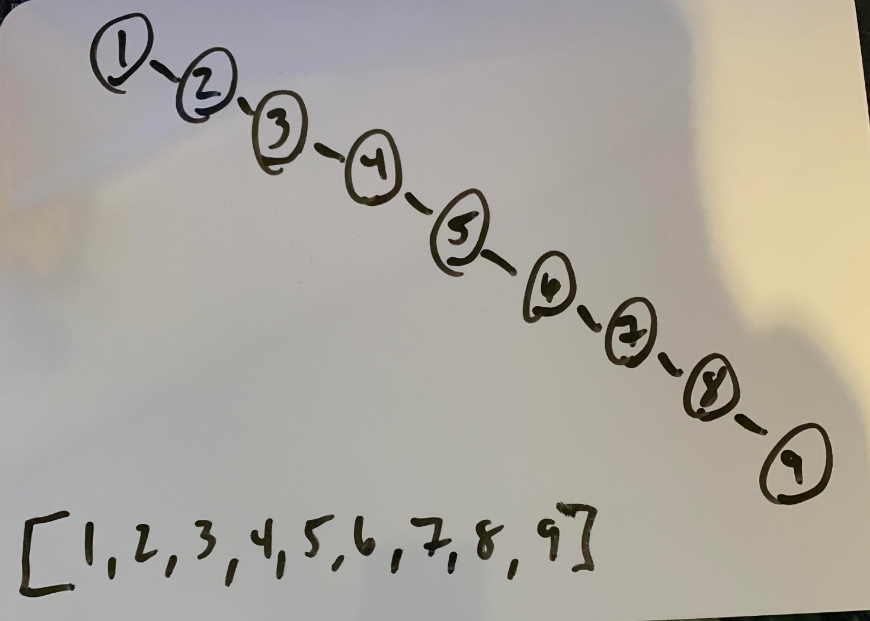 1
2
3
4
5
6
7
8
9
[1,2,3,4,5,6,7,8,9]